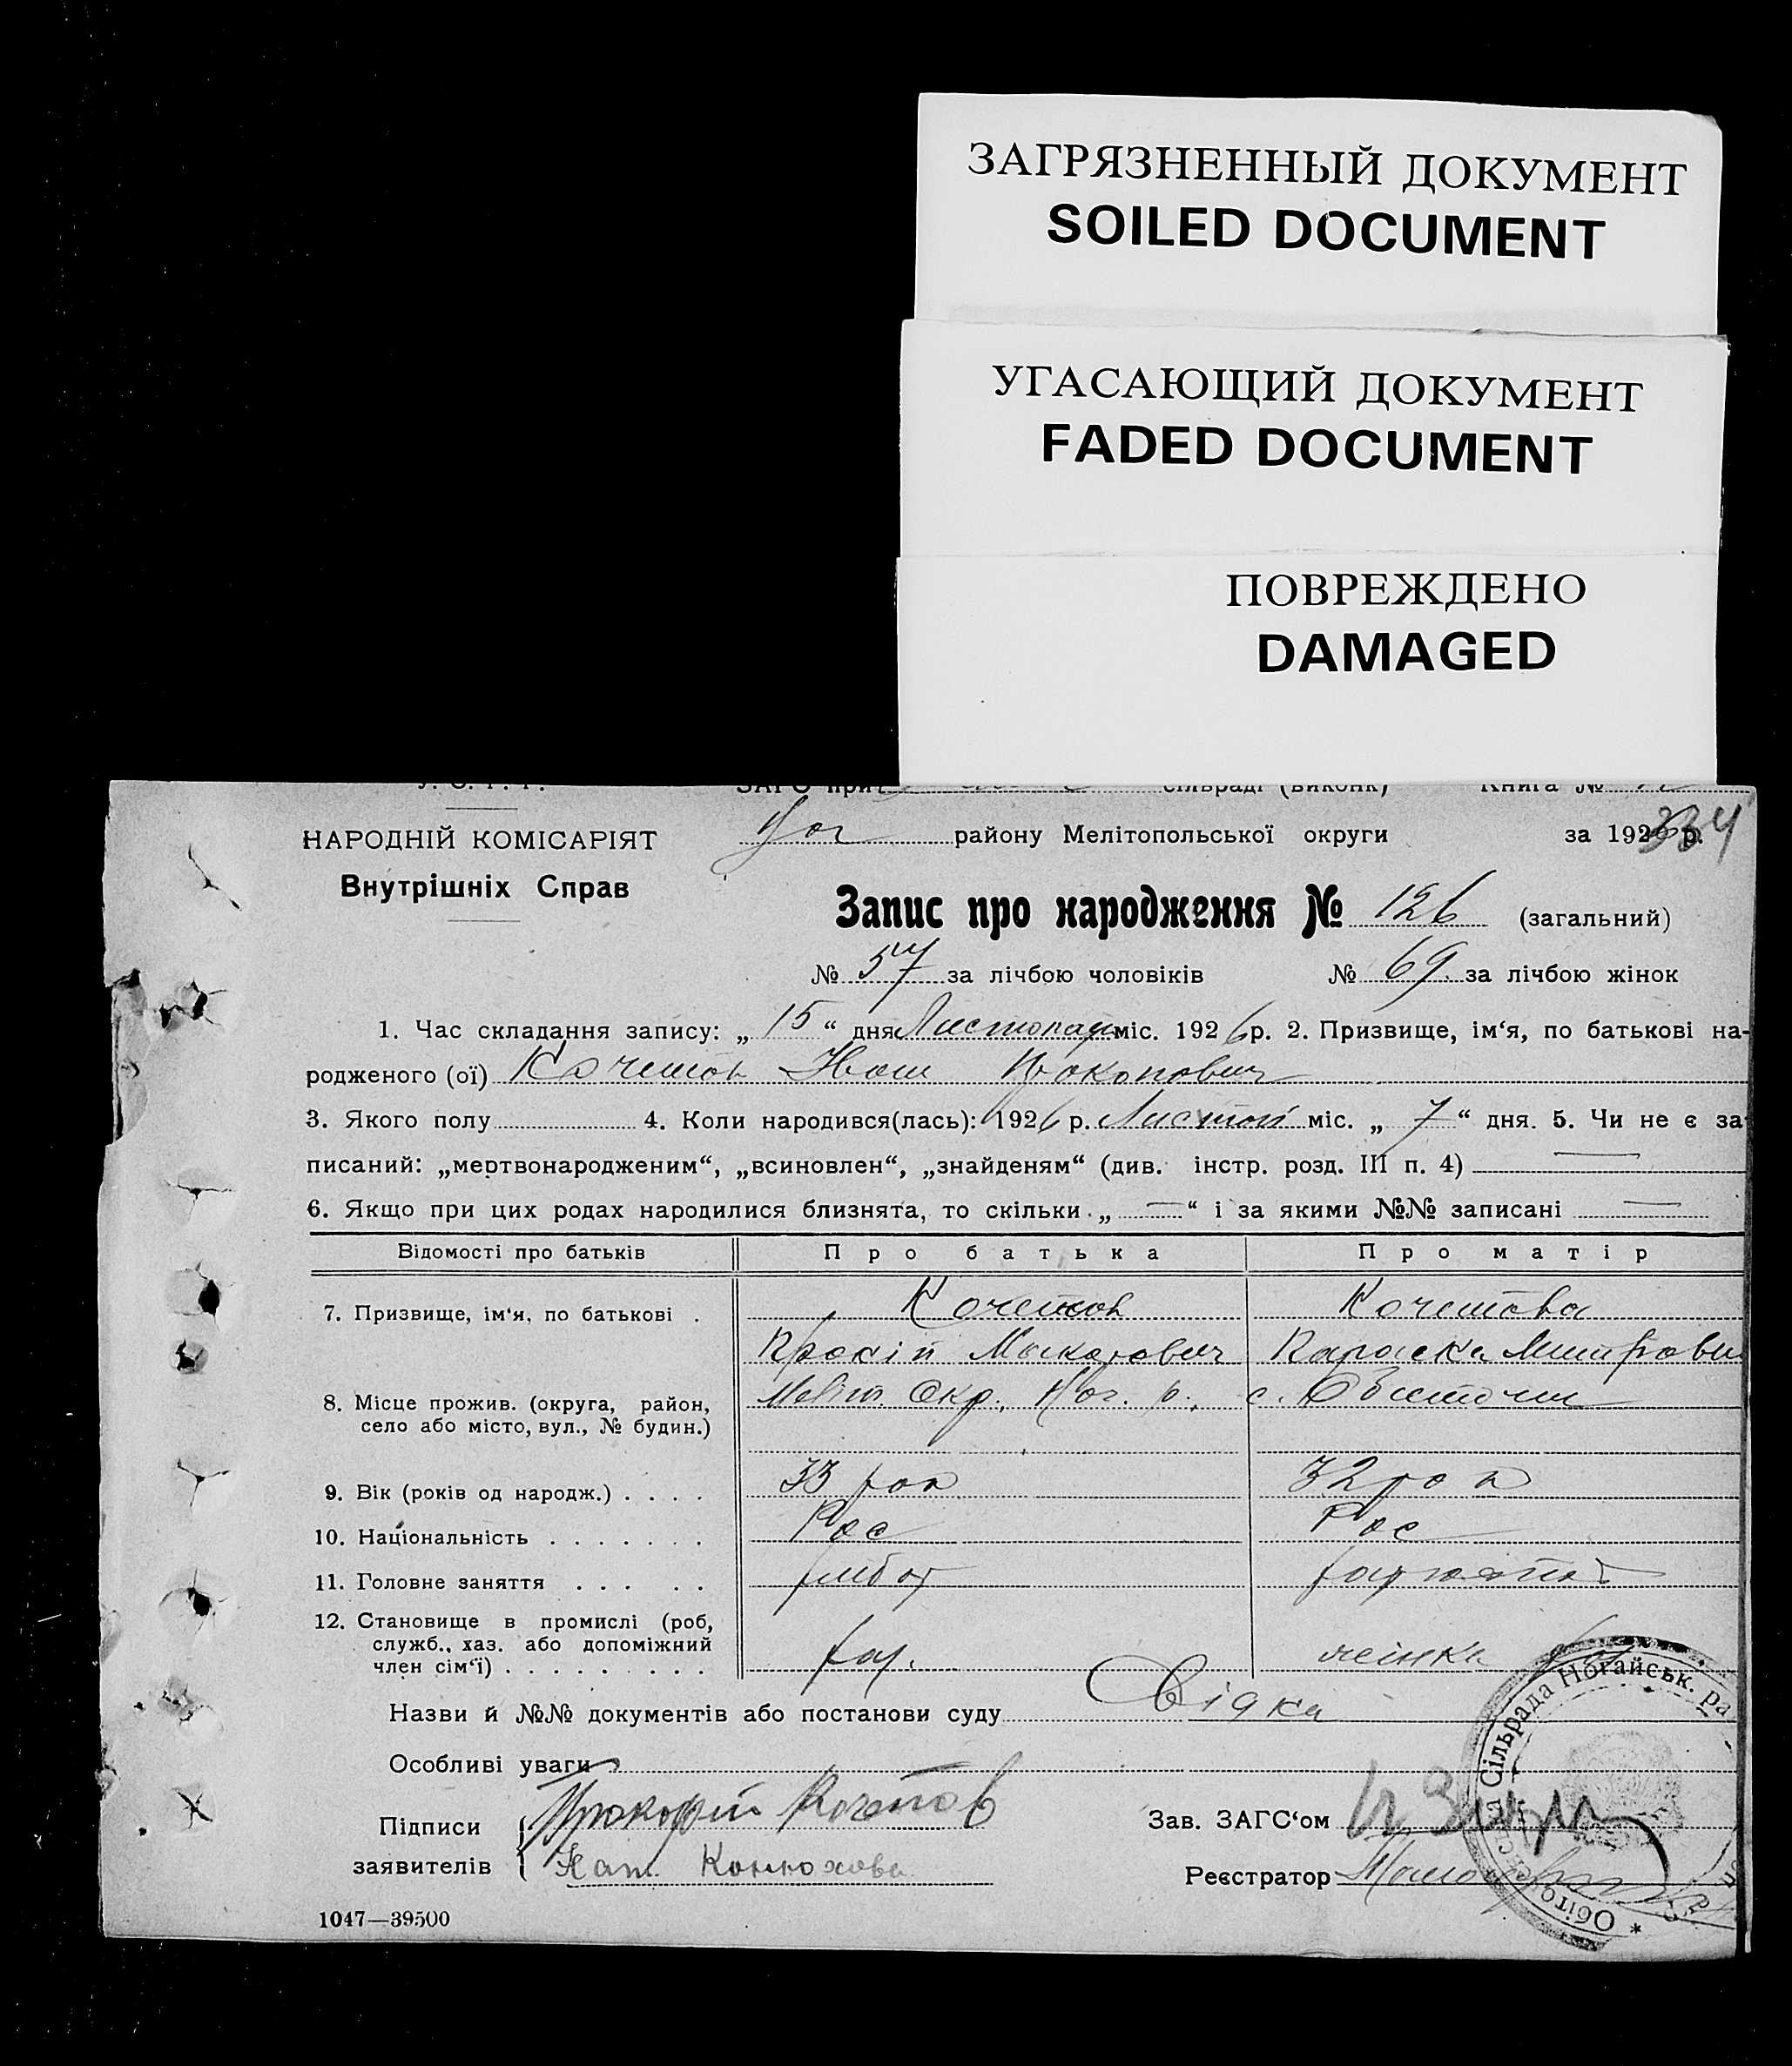 ЗАГРЯЗНЕННЫЙ ДОКУМЕНТ
SOILED DOCUMENT
УГАСАЮЩИЙ ДОКУМЕНТ
FADED DOCUMENT
ПОВРЕЖДЕНО
DAMAGED
У. С. Р. Р. ЗАГС при сільраді (виконк) Книга №
НАРОДНІЙ КОМІСАРІЯТ
Внутрішніх Справ
Ног району Мелітопольської округи за 1926 р.
334
Запис про народження № 126 (загальний)
№ 57 за лічбою чоловіків № 69 за лічбою жінок
1. Час складання запису: „ 15 “ дня Листопад міс. 1926 р. 2. Призвище, ім‘я, по батькові на-
родженого (ої) Кочетов Прокопович
3. Якого полу 4. Коли народився(лась): 1926 р. Листоп міс. „ 7 “ дня. 5. Чи не є за-
писаний: „мертвонародженим“, „всиновлен“, „знайденям“ (див. інстр. розд. III п. 4) —
6. Якщо при цих родах народилися близнята, то скільки „ — “ і за якими №№ записані —
Відомості про батьків Про батька Про матір
7. Призвище, ім‘я, по батькові . Кочетов Кочетова
Прокіп Макарович Параска Митрови
8. Місце прожив. (округа, район, село або місто, вул., № будин.) Меліт. Окр., Ног. р., с. Обиточн
9. Вік (років од народж.) . . . . 33 рок 32 рок
10. Національність . . . . . . . Рос Рос
11. Головне заняття . . . . . хлібор
12. Становище в промислі (роб,
служб., хаз. або допоміжний
член сім‘ї) . . . . . . . . . хаз. жінка хаз
Назви й №№ документів або постанови суду Свідки
Особливі уваги
Підписи Прокофий Кочетов Зав. ЗАГС‘ом
заявителів Кат. Конюхова Реєстратор
Обіточенська Сільрада Ногайськ. Ра
1047—39500